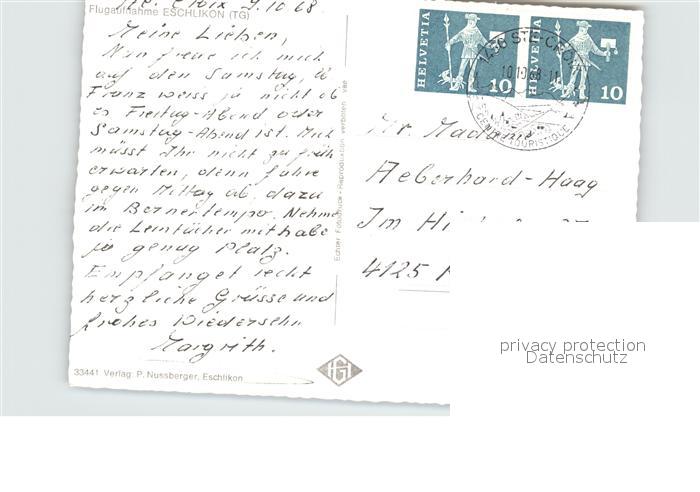 Ste. Croix 9.10.68
Flugaufnahme ESCHLIKON (TG)
Meine Lieben,
Nun freue ich mich
auf den Samstag, d
Franz weiss ja nicht ob
es Freitag-Abend oder
Samstag-Abend ist. Mich
müsst Ihr nicht zu früh
erwarten, denn fahre
gegen Mittag ab, dazu
im Bernertempo. Nehme
die Leintücher mit habe
ja genug Platz.
Empfanget recht
herzliche Grüsse und
frohes Wiedersehn
Margrith.
33441 Verlag: P. Nussberger, Eschlikon
Echter Fotodruck - Reproduktion verboten
HGI
HELVETIA 10
HELVETIA 10
1450 STE-CROIX
10.10.68
CENTRE TOURISTIQUE
Mr. Madame
Aeberhard-Haag
Im
4125
privacy protection
Datenschutz